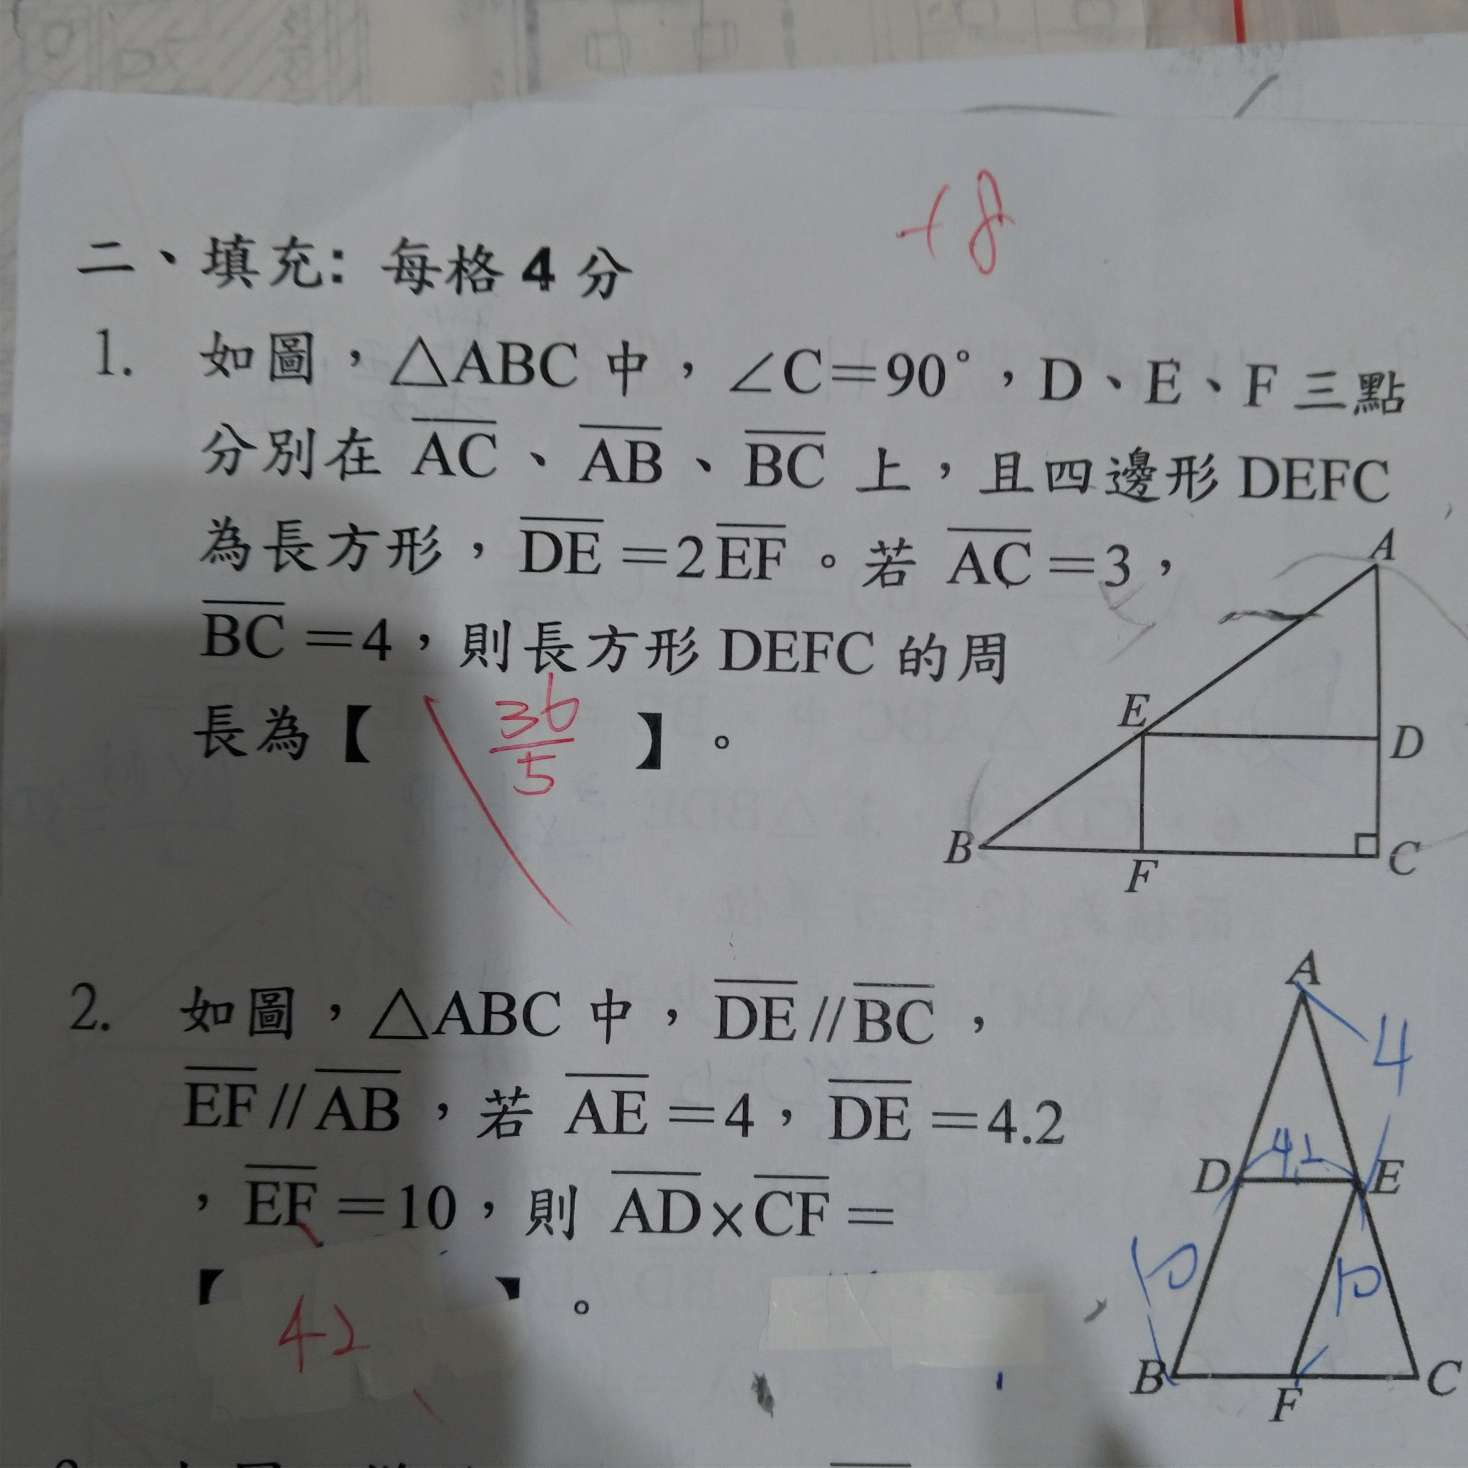 +8
二、填充: 每格 4 分
1. 如圖,△ABC 中,∠C=90°,D、E、F 三點
分別在 AC、AB、BC 上,且四邊形 DEFC
為長方形,DE=2EF。若 AC=3,
BC=4,則長方形 DEFC 的周
長為【 36/5 】。
A
E
D
B
F
C
2. 如圖,△ABC 中,DE//BC,
EF//AB,若 AE=4,DE=4.2
,EF=10,則 AD×CF=
【 42 】。
A
4
D
4.2
E
10
10
B
F
C